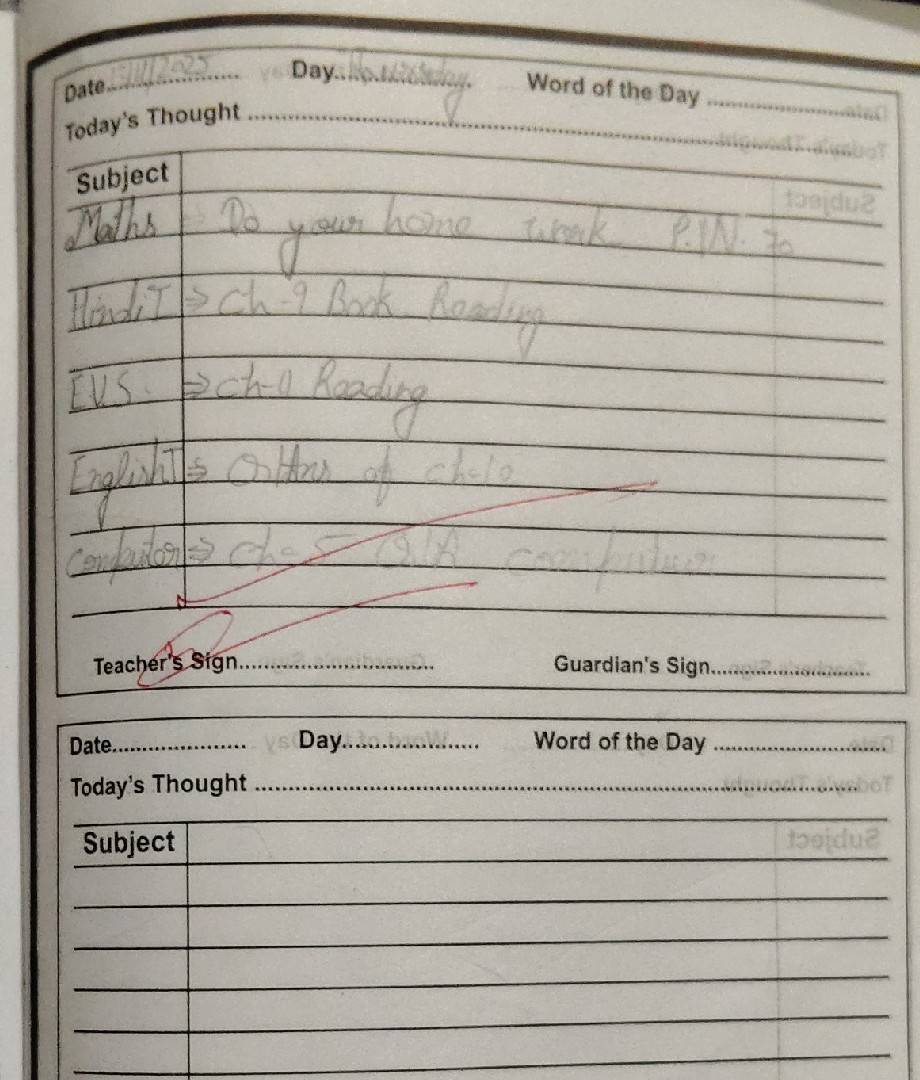 Date..................... Day...................... Word of the Day ..........................
Today's Thought ..........................
Subject
Maths Do your home work P.N. 70
Hindi I ⇒ Ch-9 Book Reading
EVS. ⇒ Ch-9 Reading
English I ⇒ of ch-10
Computor ⇒ ch-5 Q/A computer
Teacher's Sign.............................. Guardian's Sign.........................
Date..................... Day..................... Word of the Day ..........................
Today's Thought ..........................
Subject